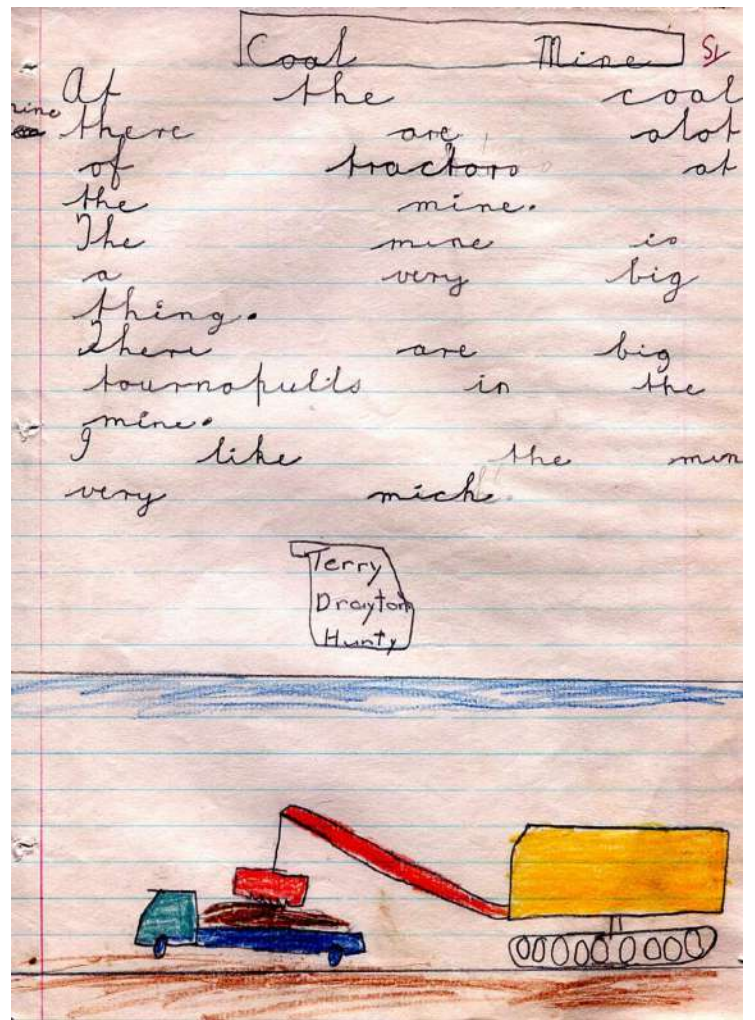 Coal Mine
At the coal
mine there are alot
of tractors at
the mine.
The mine is
a very big
thing.
There are big
tournapulls in the
mine.
I like the min
very mich.
Terry
Drayton
Hunty